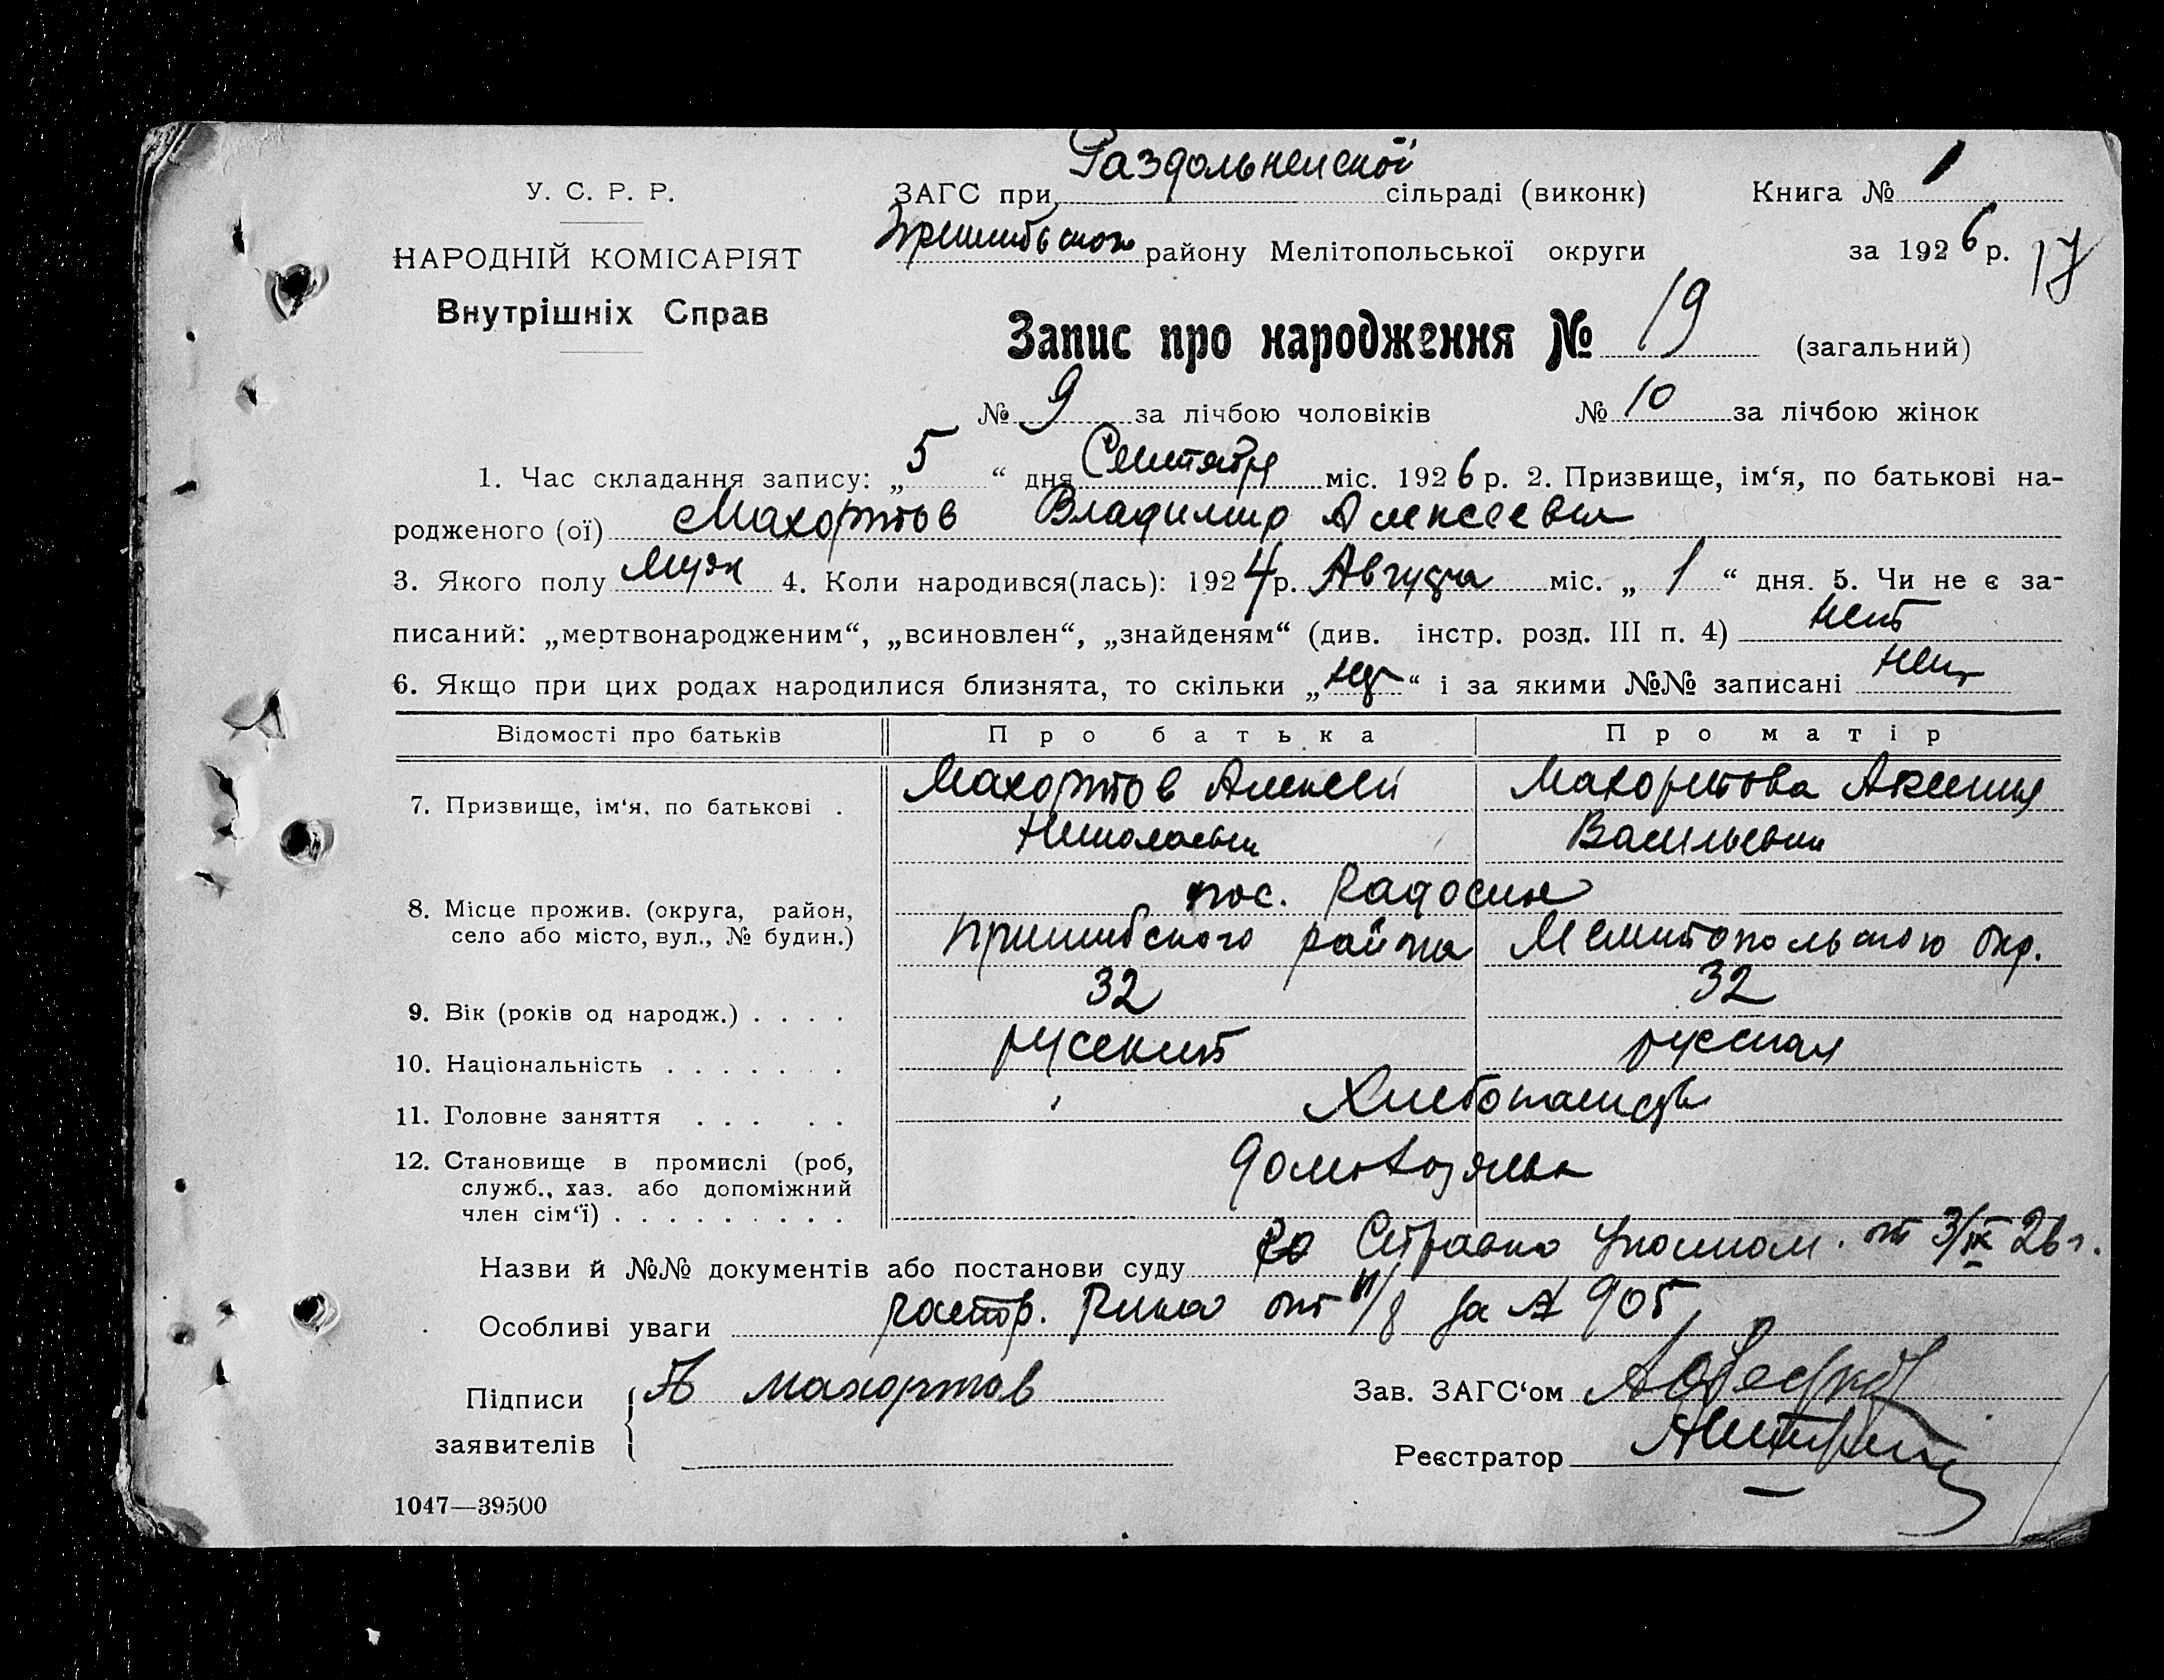 Раздольненской
У. С. Р. Р. ЗАГС при сільраді (виконк) Книга № 1
НАРОДНІЙ КОМІСАРІЯТ Пришибського району Мелітопольської округи за 1926 р. 17
Внутрішніх Справ
Запис про народження № 19 (загальний)
№ 9 за лічбою чоловіків № 10 за лічбою жінок
1. Час складання запису: „5“ дня Сентября міс. 1926 р. 2. Призвище, ім‘я, по батькові на-
родженого (ої) Махортов Владимир Алексеевич
3. Якого полу Муж 4. Коли народився(лась): 1924 р. Августа міс. „1“ дня. 5. Чи не є за-
писаний: „мертвонародженим“, „всиновлен“, „знайденям“ (див. інстр. розд. III п. 4) нет
6. Якщо при цих родах народилися близнята, то скільки „нет“ і за якими №№ записані нет
Відомості про батьків Про батька Про матір
7. Призвище, ім‘я, по батькові . Махортов Алексей Махортова Аксиния
Николаевич Васильевна
8. Місце прожив. (округа, район, пос.
село або місто, вул., № будин.) Пришибского района Мелитопольского окр.
9. Вік (років од народж.) . . . . 32 32
10. Національність . . . . . . . русский русская
11. Головне заняття . . . . . Хлебопашество
12. Становище в промислі (роб,
служб., хаз. або допоміжний домохозяева
член сім‘ї) . . . . . . . . .
Назви й №№ документів або постанови суду Справка от 3/IX 26 г.
Особливі уваги Рика от за № 905
Підписи А Махортов Зав. ЗАГС‘ом
заявителів Реєстратор
1047—39500